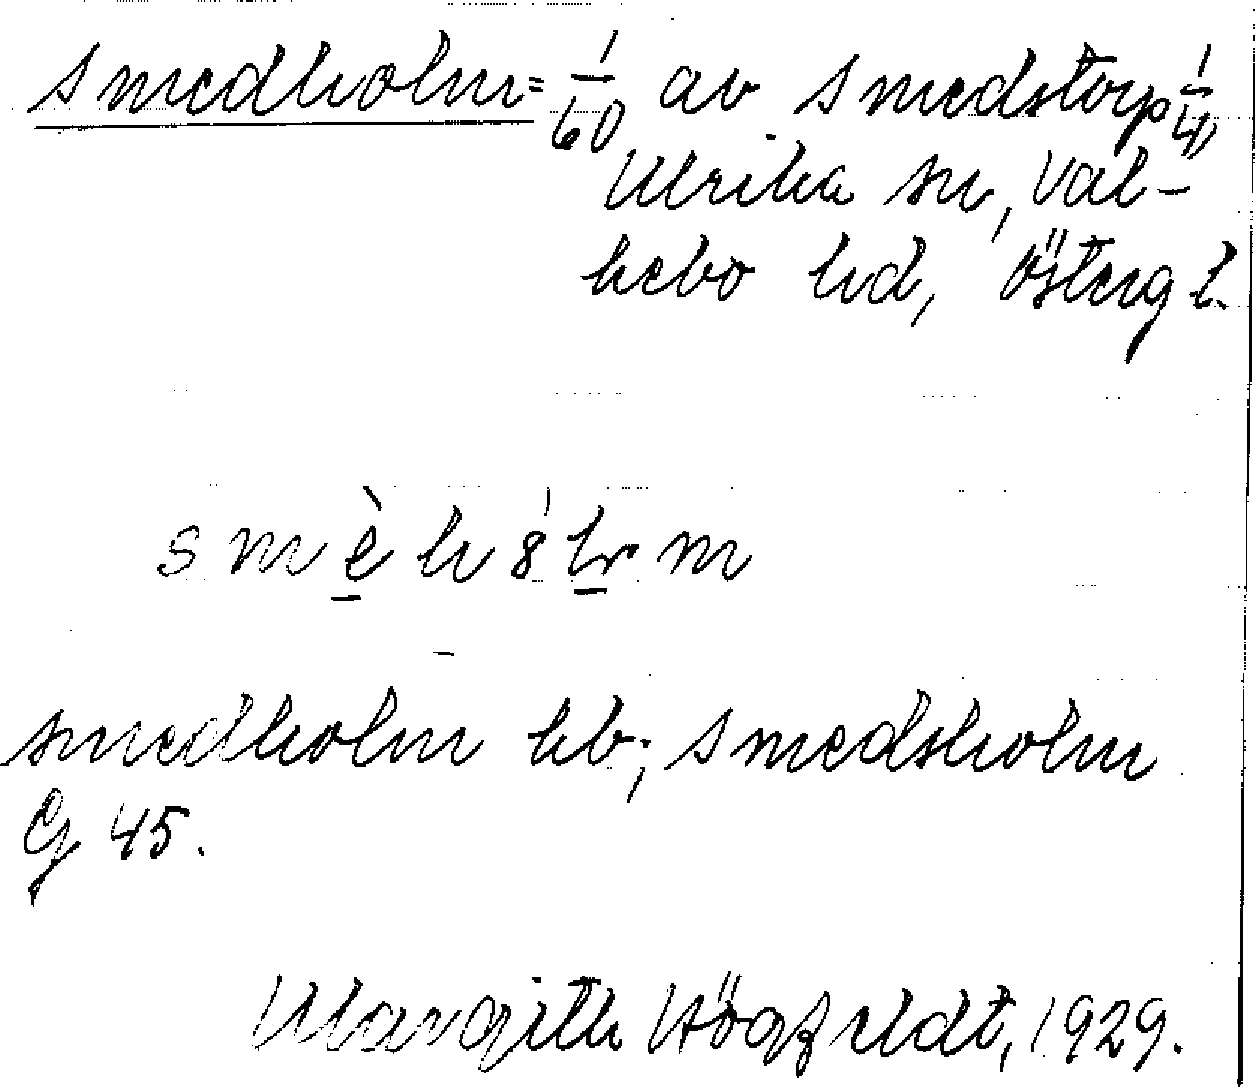 Smedholm = 1/60 av Smedstorp 1/4,
Ulrika sn, Val-
kebo hd, Östergl.
smedholm hb; Smedsholm
G 45.
Margith Högfeldt, 1929.